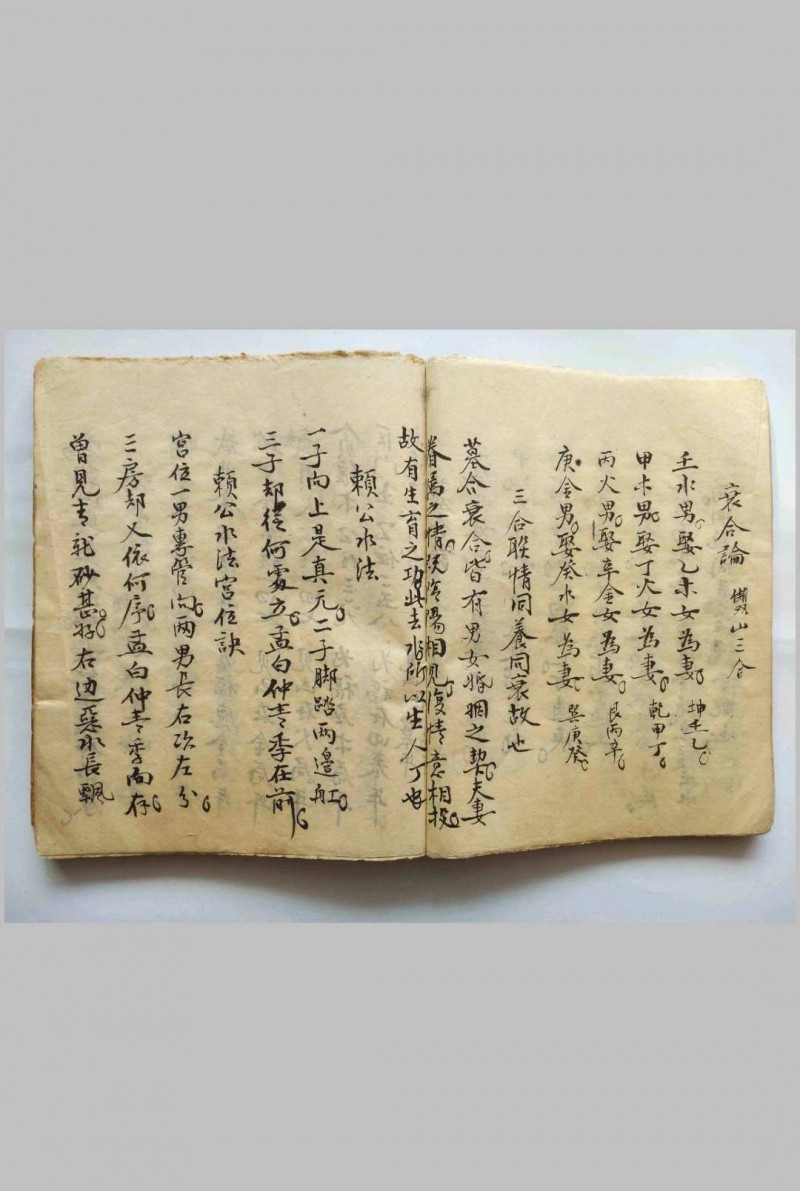 衰合論 山三合
壬水男。娶乙木女為妻。坤壬乙。
甲木男。娶丁火女為妻。乾甲丁。
丙火男。娶辛金女為妻。艮丙辛。
庚金男。娶癸水女為妻。巽庚癸。
三合联情同養同衰故也
墓合衰合。皆有男女婚姻之契。夫妻
眷属之情。既陰陽相見。復情意相投。
故有生育之功。此去水所以生人丁也
賴公水法
一子向上是真元。二子脚踏两邊舡。
三子却從何處立。孟白仲青季在前。
賴公水法宮位訣
宮位一男專管向。两男長右次左分。
三房却又依何序。孟白仲青季向存。
曾見青龍砂甚好。右边惡水長飄